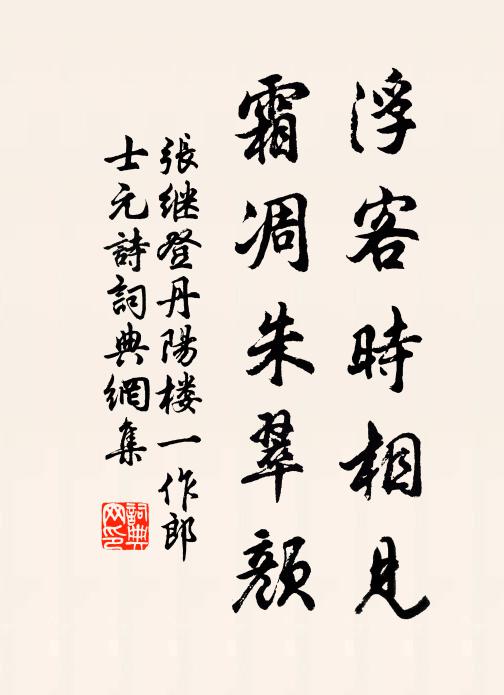 浮客時相見
霜凋朱翠顏
張继登丹陽楼一作郎
士元詩詞典網集
詞典
网印